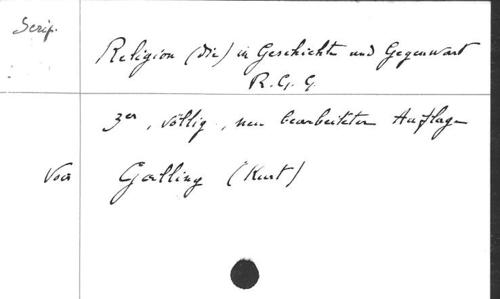 Scrip.
Religion (die) in Geschichte und Gegenwart
R. G. G.
3er, völlig, neu bearbeiteten Auflage
Voir Galling (Kurt)